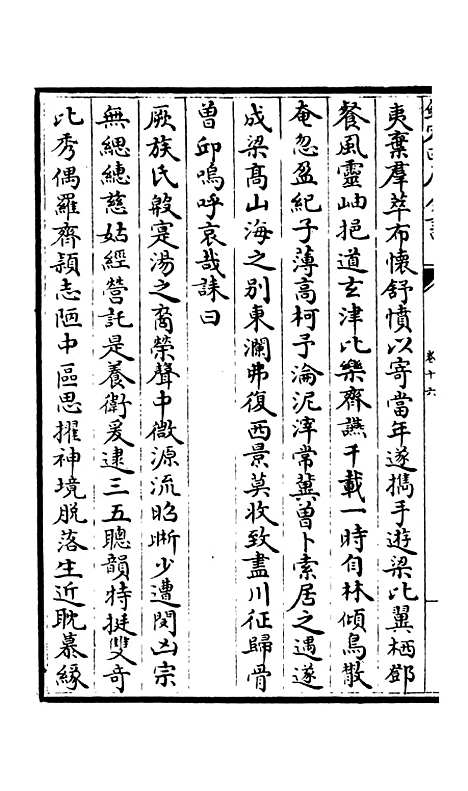 卷十六
夷棄羣萃布懷舒憤以寄當年遂攜手遊梁比翼栖鄧
餐風靈岫挹道玄津比樂齊讌千載一時自林傾鳥散
奄忽盈紀子薄高柯予淪泥滓常冀曽卜索居之遇遂
成梁髙山海之别東瀾弗復西景莫收致盡川征歸骨
曽邱嗚呼哀哉誄曰
厥族氏殷寔湯之裔榮聲中微源流昭晰少遭閔凶宗
無緦緦慈姑經營託是養衛爰逮三五聰韻特挺雙奇
比秀偶羅齊頴志陋中區思擢神境脱落生近耽慕縁